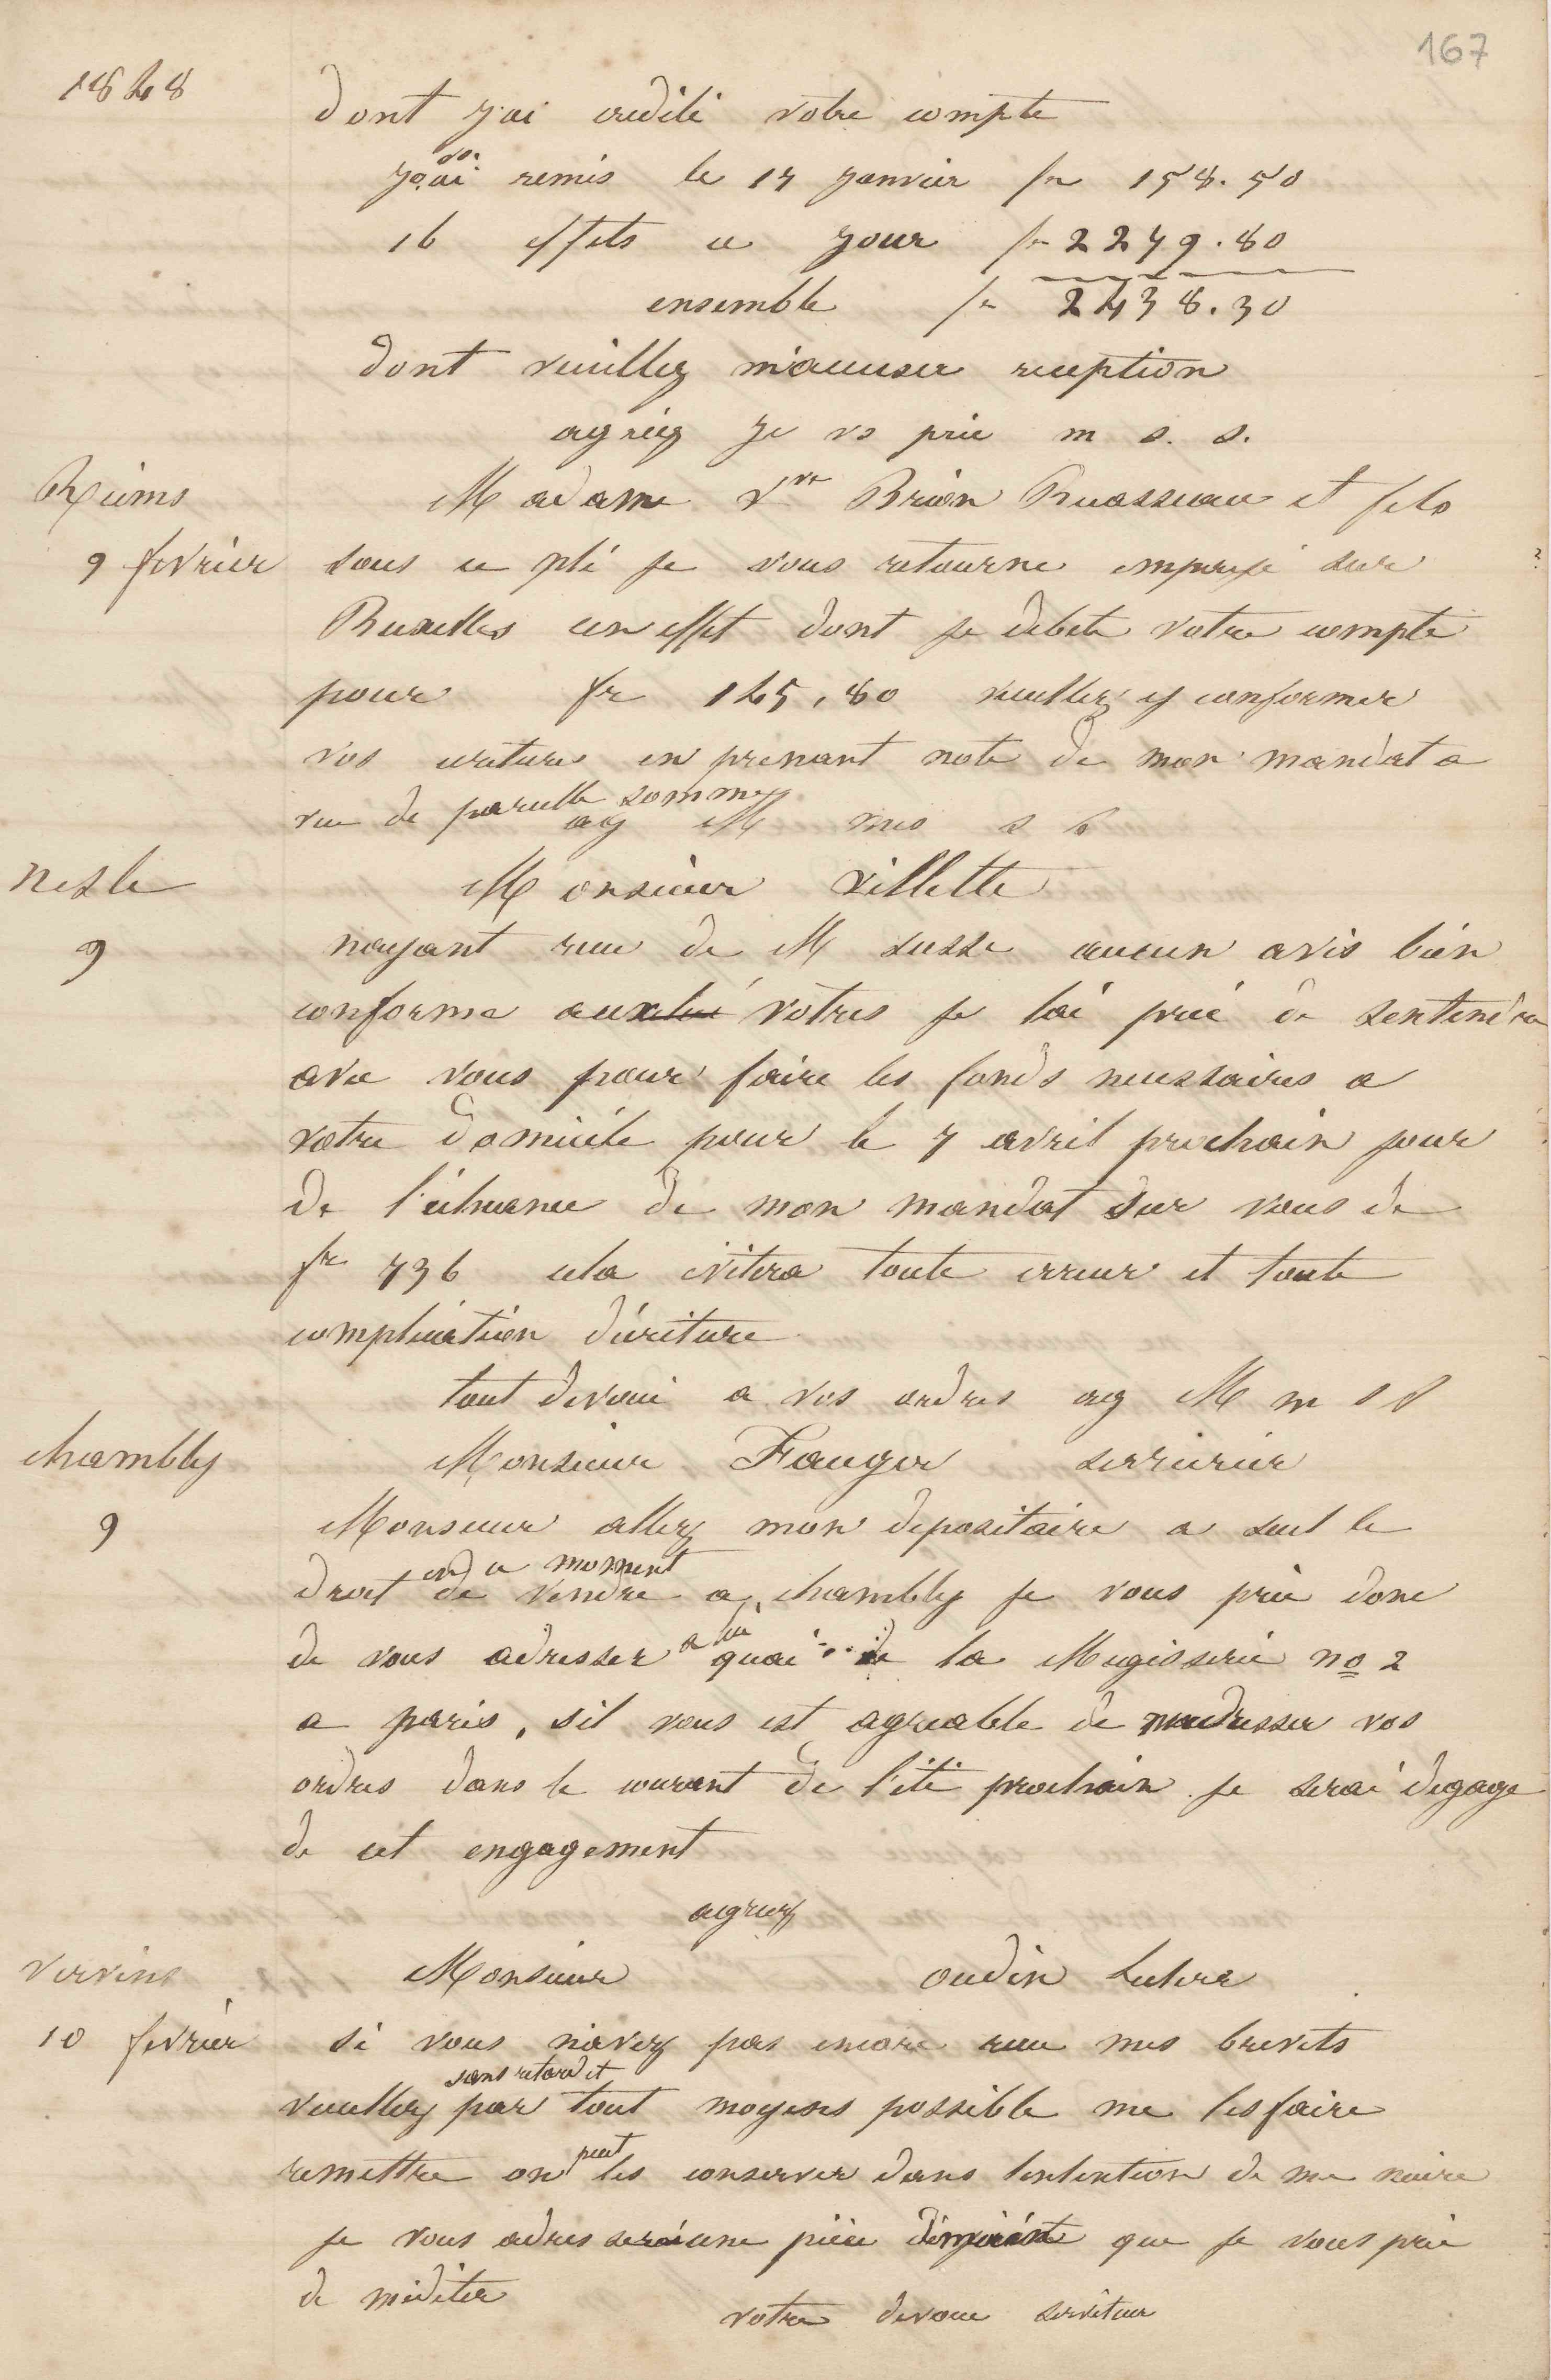 167
1848
dont j'ai credité votre compte
vo.
j'ai remis le 15 janvier fr 158.50
16 effets ce jour fr 2279.80
ensemble fr 2438.30
dont veuillez m'accuser reception
agréez je vs prie m s. s.
Reims
Madame Vve Brion Ruasseau et fils
9 fevrier
sous ce pli je vous retourne impayé sur
Bruxelles un effet dont je debite votre compte
pour fr 145,80 veuillez y conformer
vos ecritures en prenant note de mon mandat a
vue de pareille somme
ag M mes s
nesle
Monsieur Villette
9
nayant recu de M susse aucun avis bien
conforme aux votres je lai prié de sentendre
avec vous pour faire les fonds necessaires a
votre domicile pour le 7 avril prochain jour
de l'écheance de mon mandat sur vous de
fr 736 cela évitera toute erreur et toute
complication d'écriture
tout devoué a vos ordres ag M m s s
chambly
Monsieur Fauger serrurier
9
Monsieur allez mon depositaire a seul le
en ce moment
droit de vendre a chambly je vous prie donc
de vous adresser a lui quai de la Megisserie no 2
a paris, sil vous est agreable de madresser vos
ordres dans le courant de l'été prochain je serai degagé
de cet engagement
agreez
Vervins
Monsieur oudin
10 fevrier
si vous n'avez pas encore recu mes brevets
sans retard et
veuillez par tout moyens possible me les faire
remettre on peut les conserver dans lintention de me nuire
je vous adresserai une pièce que je vous prie
de méditer
votre devoué serviteur